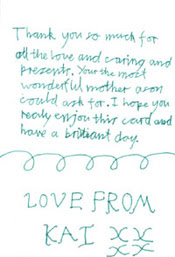 Thank you so much for
all the love and caring and
presents. Your the most
wonderful mother a son
could ask for. I hope you
really enjoy this card and
have a brilliant day.
LOVE FROM
KAI XX
XX